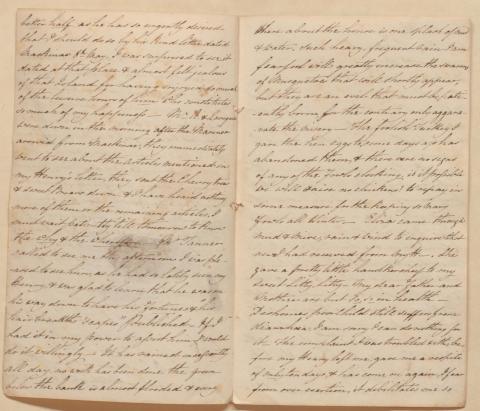 better half as he has so urgently desired
that I should do so by his kind letter dated
Mackinac 8th May. I was surprised to see it
dated at that place & almost felt jealous
of that Island for having enjoyed so much
of the leisure hours of him who constitutes
so much of my happiness — Mr. A &
were down in the morning after the
arrived from Mackinac, they immediately
went to see about the articles mentioned in
my Henry's letter, they sent the Cherry tree
& sent down & I have heard nothing
more of them or the remaining articles, I
must wait till tomorrow to know
the & the
called to see me this afternoon I was plea
sed to see him, as he had so lately seen my
Henry, & was glad to learn that he was on
his way down to have his "fortunes & his
hair breadth 'scapes" published — If I
had it in my power to assist him I would
do it willingly. — It has rained incessantly
all day, no work has been done the ground
below the bank is almost flooded & every
where about the house is one splash of mud
& water, such heavy, frequent rain I am
fearful will greatly increase the swarms
of Musquetoes that will shortly appear,
but they are an evil that must be pati
ently borne for the contrary only aggra
vates the misery — The foolish Turkey I
gave the hen eggs to some days ago has
abandoned them, & there are no signs
of any of the fowls clocking, is it possible
we will raise no chickens! to repay in
some measure for the keeping so many
fowls all Winter — Eliza came through
mud & mire, rain & wind to enquire what
news I had received from — She
gave a pretty little handkerchief to my
sweet Litty, Litty — My dear Father and
Mother are but so, so in health —
poor child still suffers from
diarrhœa, I am sorry I can do nothing for
it. The complaint I was troubled with, be
fore my Henry left me, gave me a respite
of only ten days & has come on again, I fear
from over exertion, it debilitates me so